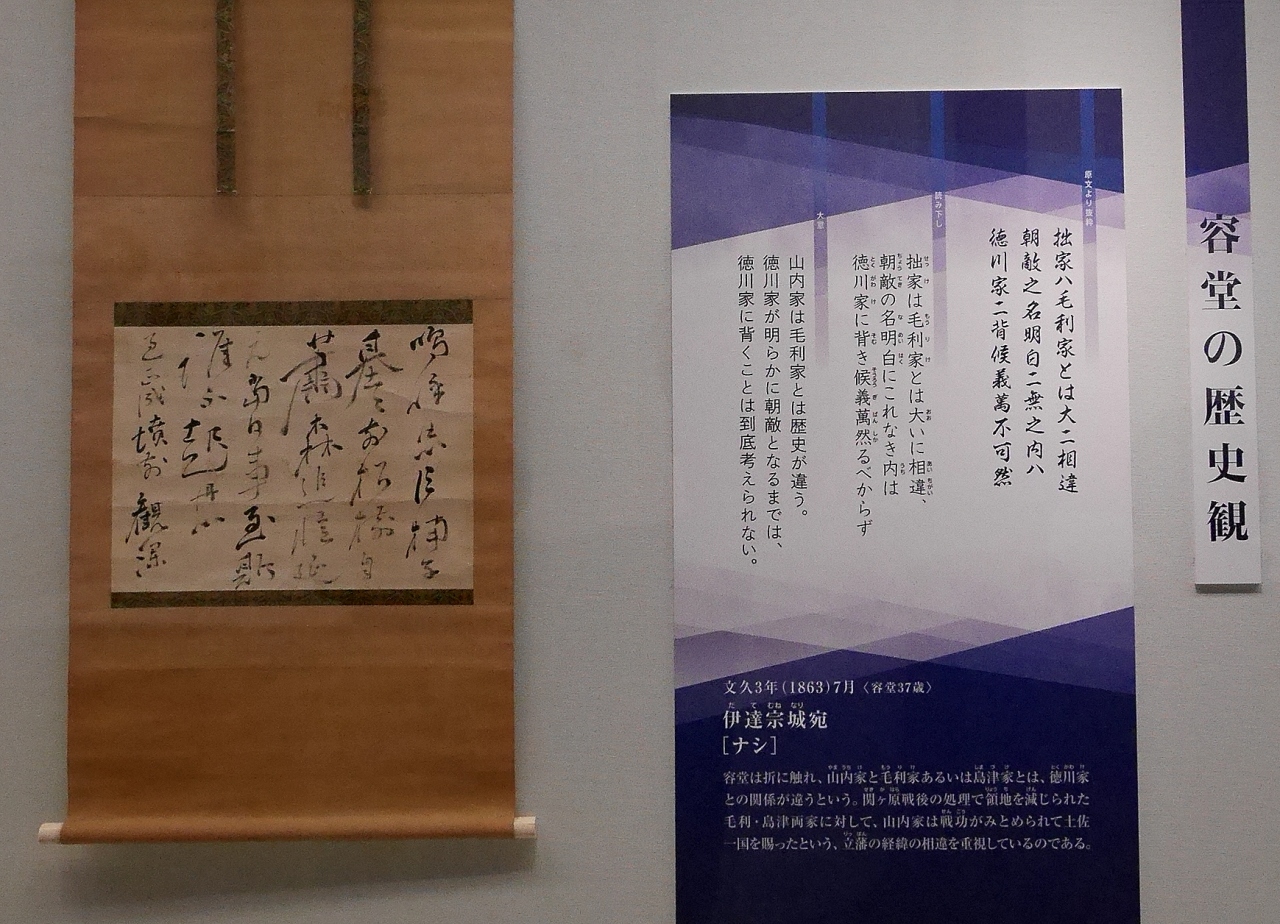 容堂の歴史観
原文より抜粋
拙家ハ毛利家とは大ニ相違
朝敵之名明白ニ無之内ハ
徳川家ニ背候義萬不可然
読み下し
拙家は毛利家とは大いに相違、
朝敵の名明白にこれなき内は
徳川家に背き候義萬然るべからず
大意
山内家は毛利家とは歴史が違う。
徳川家が明らかに朝敵となるまでは、
徳川家に背くことは到底考えられない。
文久3年(1863)7月〈容堂37歳〉
伊達宗城宛
[ナシ]
容堂は折に触れ、山内家と毛利家あるいは島津家とは、徳川家
との関係が違うという。関ヶ原戦後の処理で領地を減じられた
毛利・島津両家に対して、山内家は戦功がみとめられて土佐
一国を賜ったという、立藩の経緯の相違を重視しているのである。
嗚呼忠臣楠子
蕭森追懐延
元當日事